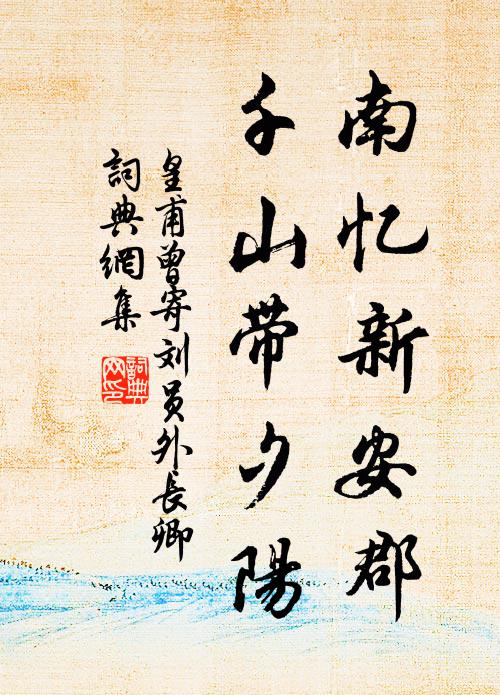 南忆新安郡
千山带夕陽
皇甫曾寄刘员外長卿
詞典網集
詞典网印